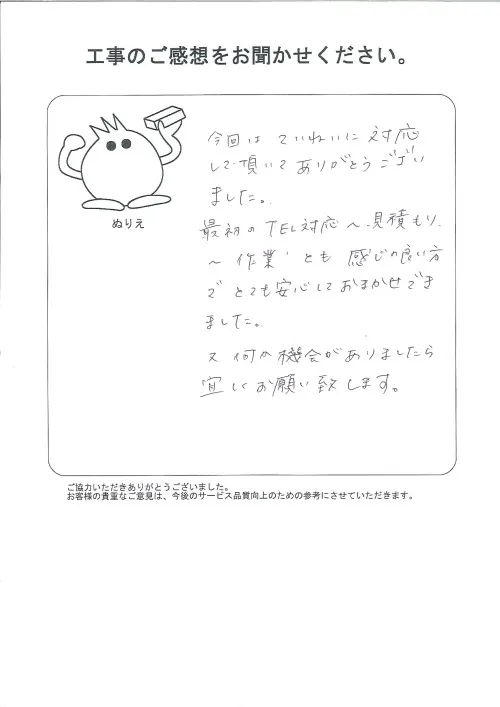 工事のご感想をお聞かせください。
ぬりえ
今回は ていねいに対応
して頂いてありがとうござい
ました。
最初のTEL対応〜見積もり
〜作業 とも 感じの良い方
で とても安心しておまかせできま
ました。
又 何か機会がありましたら
宜しくお願い致します。
ご協力いただきありがとうございました。
お客様の貴重なご意見は、今後のサービス品質向上のための参考にさせていただきます。